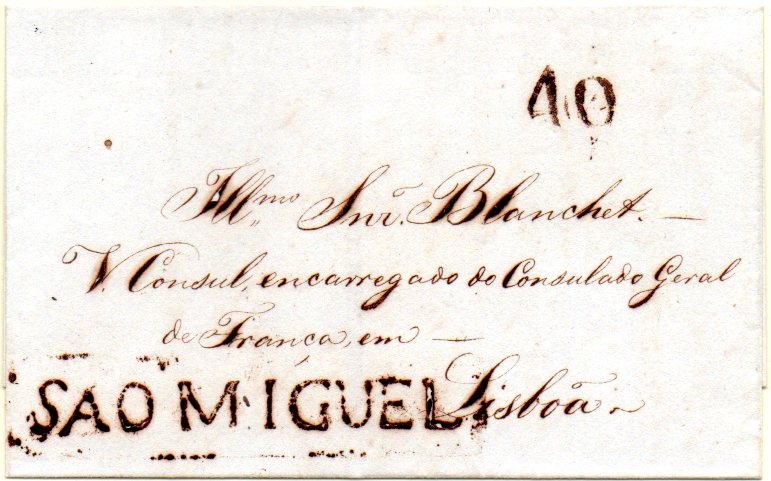 40
Illmo Snr. Blanchet. —
V. Consul, encarregado do Consulado Geral
de Franca, em —
Lisboa.
SAO MIGUEL